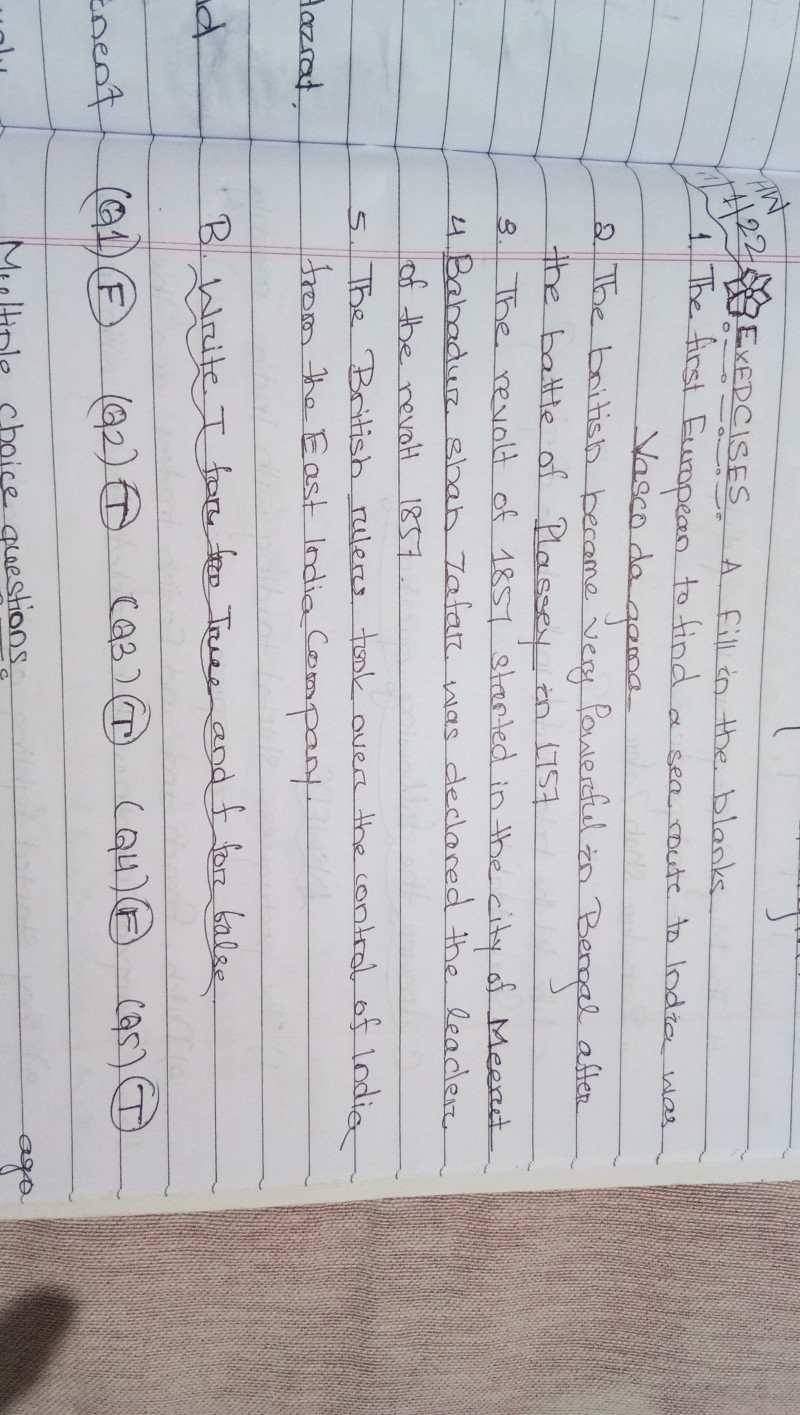 HW
EXERCISES A fill in the blanks
1. The first European to find a sea route to India was
Vasco da gama
2. The british became very Powerful in Bengal after
the battle of Plassey in 1757
3. The revolt of 1857 started in the city of Meerut
4. Bahadur shah Zafar was declared the leader
of the revolt 1857.
5. The British rulers took over the control of India
from the East India Company.
B. Write T for True and f for false
(Q1) F (Q2) T (Q3) T (Q4) F (Q5) T
Multiple choice questions
ago